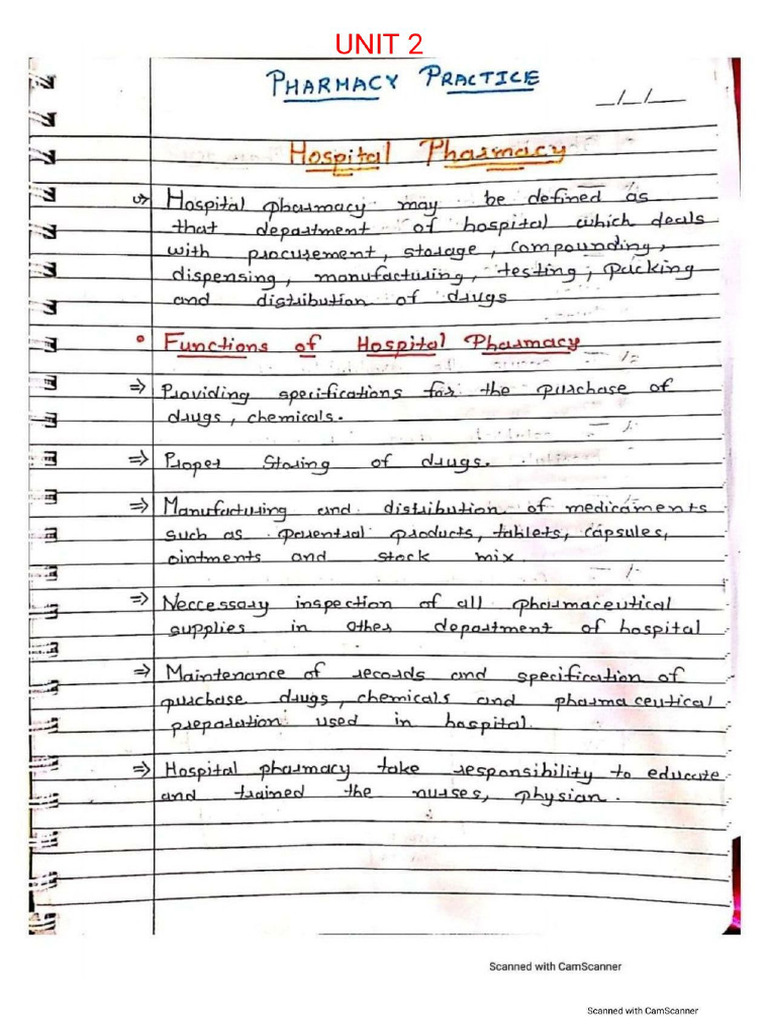 UNIT 2
PHARMACY PRACTICE
_/_/_
Hospital Pharmacy
Hospital pharmacy may be defined as
that department of hospital which deals
with procurement, storage, compounding,
dispensing, manufacturing, testing, packing
and distribution of drugs
• Functions of Hospital Pharmacy
⇒ Providing specifications for the purchase of
drugs, chemicals.
⇒ Proper Storing of drugs.
⇒ Manufacturing and distribution of medicaments
such as parentral products, tablets, capsules,
ointments and stock mix.
⇒ Neccessary inspection of all pharmaceutical
supplies in other department of hospital
⇒ Maintenance of records and specification of
purchase drugs, chemicals and pharmaceutical
preparation used in hospital.
⇒ Hospital pharmacy take responsibility to educate
and trained the nurses, physian.
Scanned with CamScanner
Scanned with CamScanner